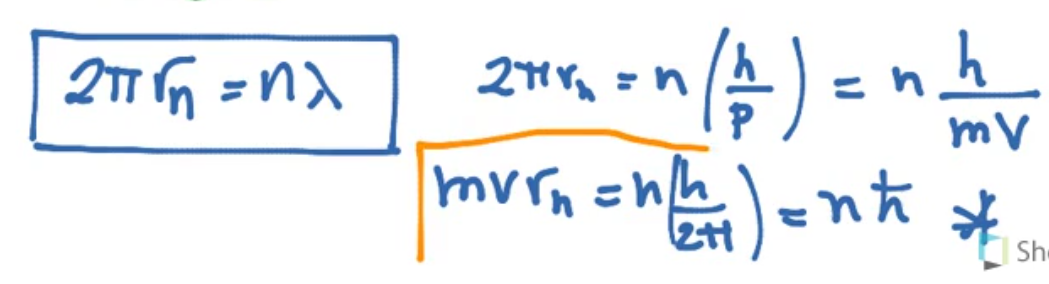 2πrₙ = nλ
2πrₙ = n(h/p) = n h/mv
mvrₙ = n(h/2π) = nħ *
Sh